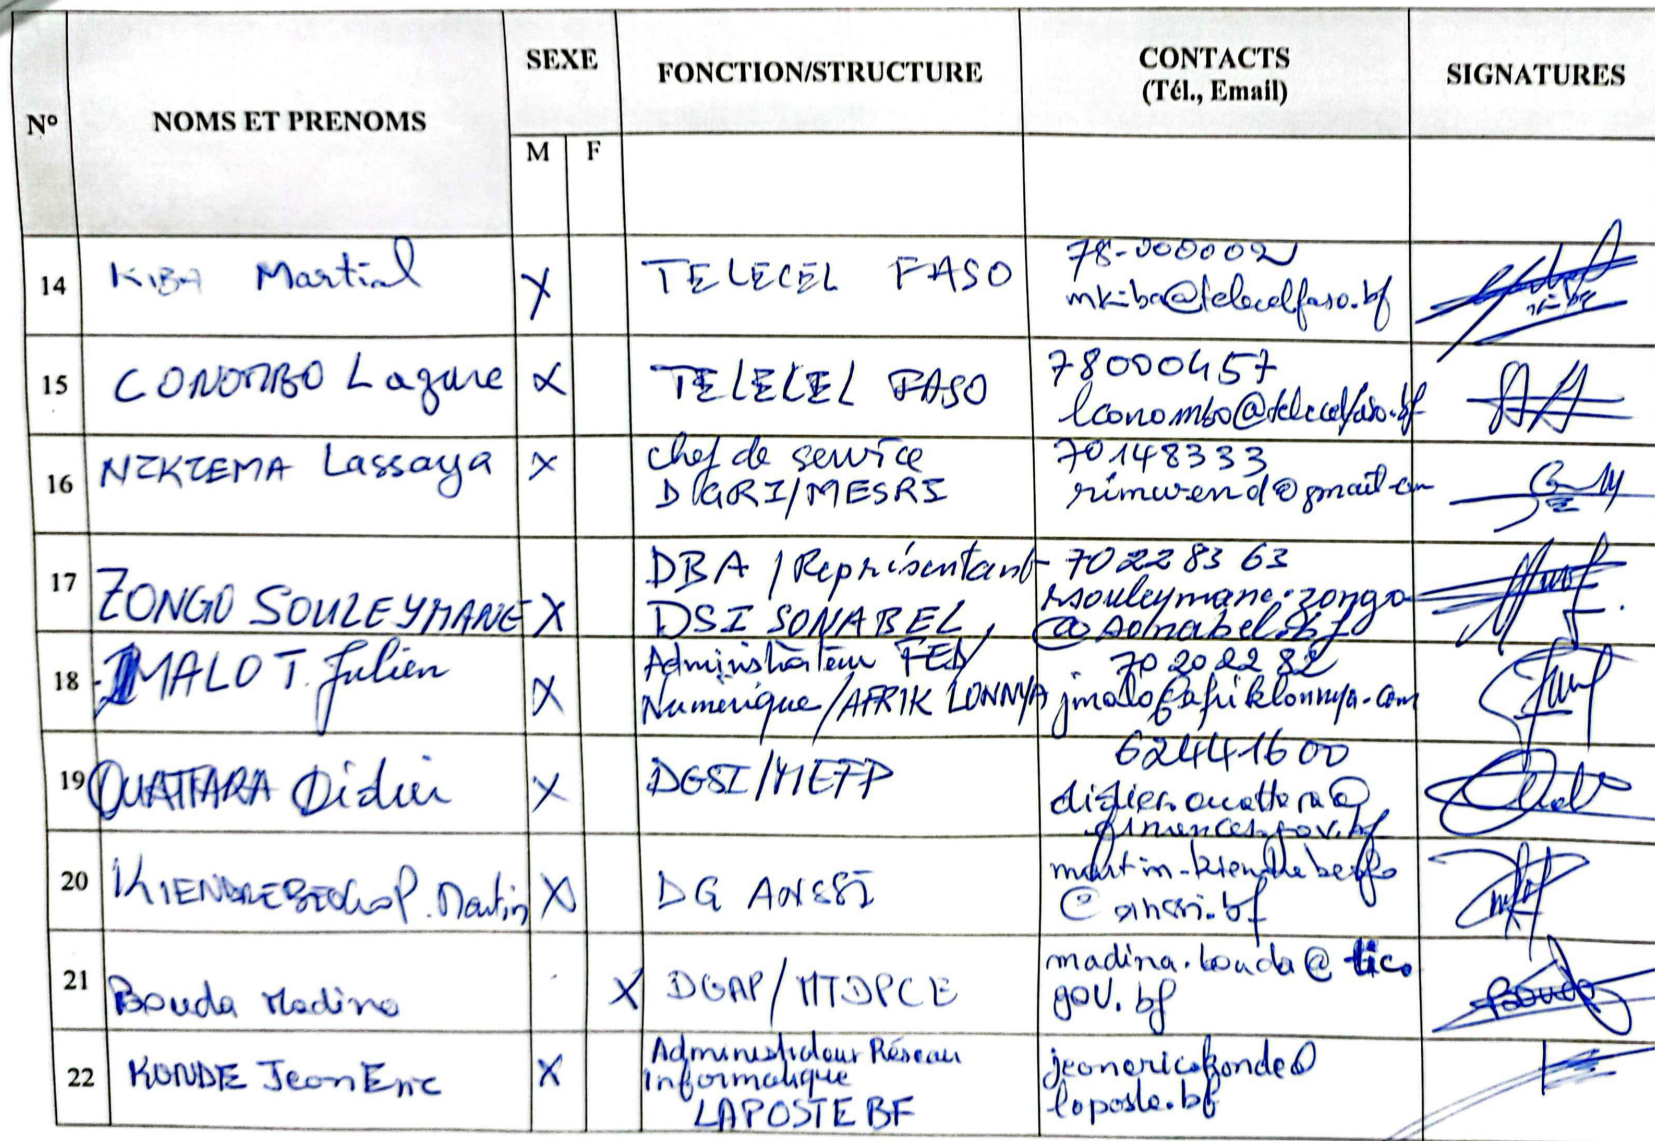 N° NOMS ET PRENOMS SEXE FONCTION/STRUCTURE CONTACTS SIGNATURES
(Tél., Email)
M F
14 KIBA Martial X TELECEL FASO 78-000002
mkiba@telecelfaso.bf
15 CONOMBO Lazare X TELECEL FASO 78000457
lconombo@telecelfaso.bf
16 NIKIEMA Lassaya X Chef de service 70148333
DGRI/MESRI rimwend@gmail.com
17 ZONGO SOULEYMANE X DBA / Représentant 70228363
DSI SONABEL souleymane.zongo
@sonabel.bf
18 MALO T. Julien X Administrateur 70202282
Numérique/AFRIK LONNYA jmalo@afriklonnya.com
19 OUATTARA Didier X DGSI/MEFP 624441600
didier.ouattara@
finances.gov.bf
20 KIENDREBEOGO P. Martin X DG ANSSI martin.kiendrebeogo
@anssi.bf
21 Bouda Madina X DGAP/MTDPCE madina.bouda@tic.
gov.bf
22 KONDE Jean Eric X Administrateur Réseau jeanerickonde@
Informatique laposte.bf
LAPOSTE BF